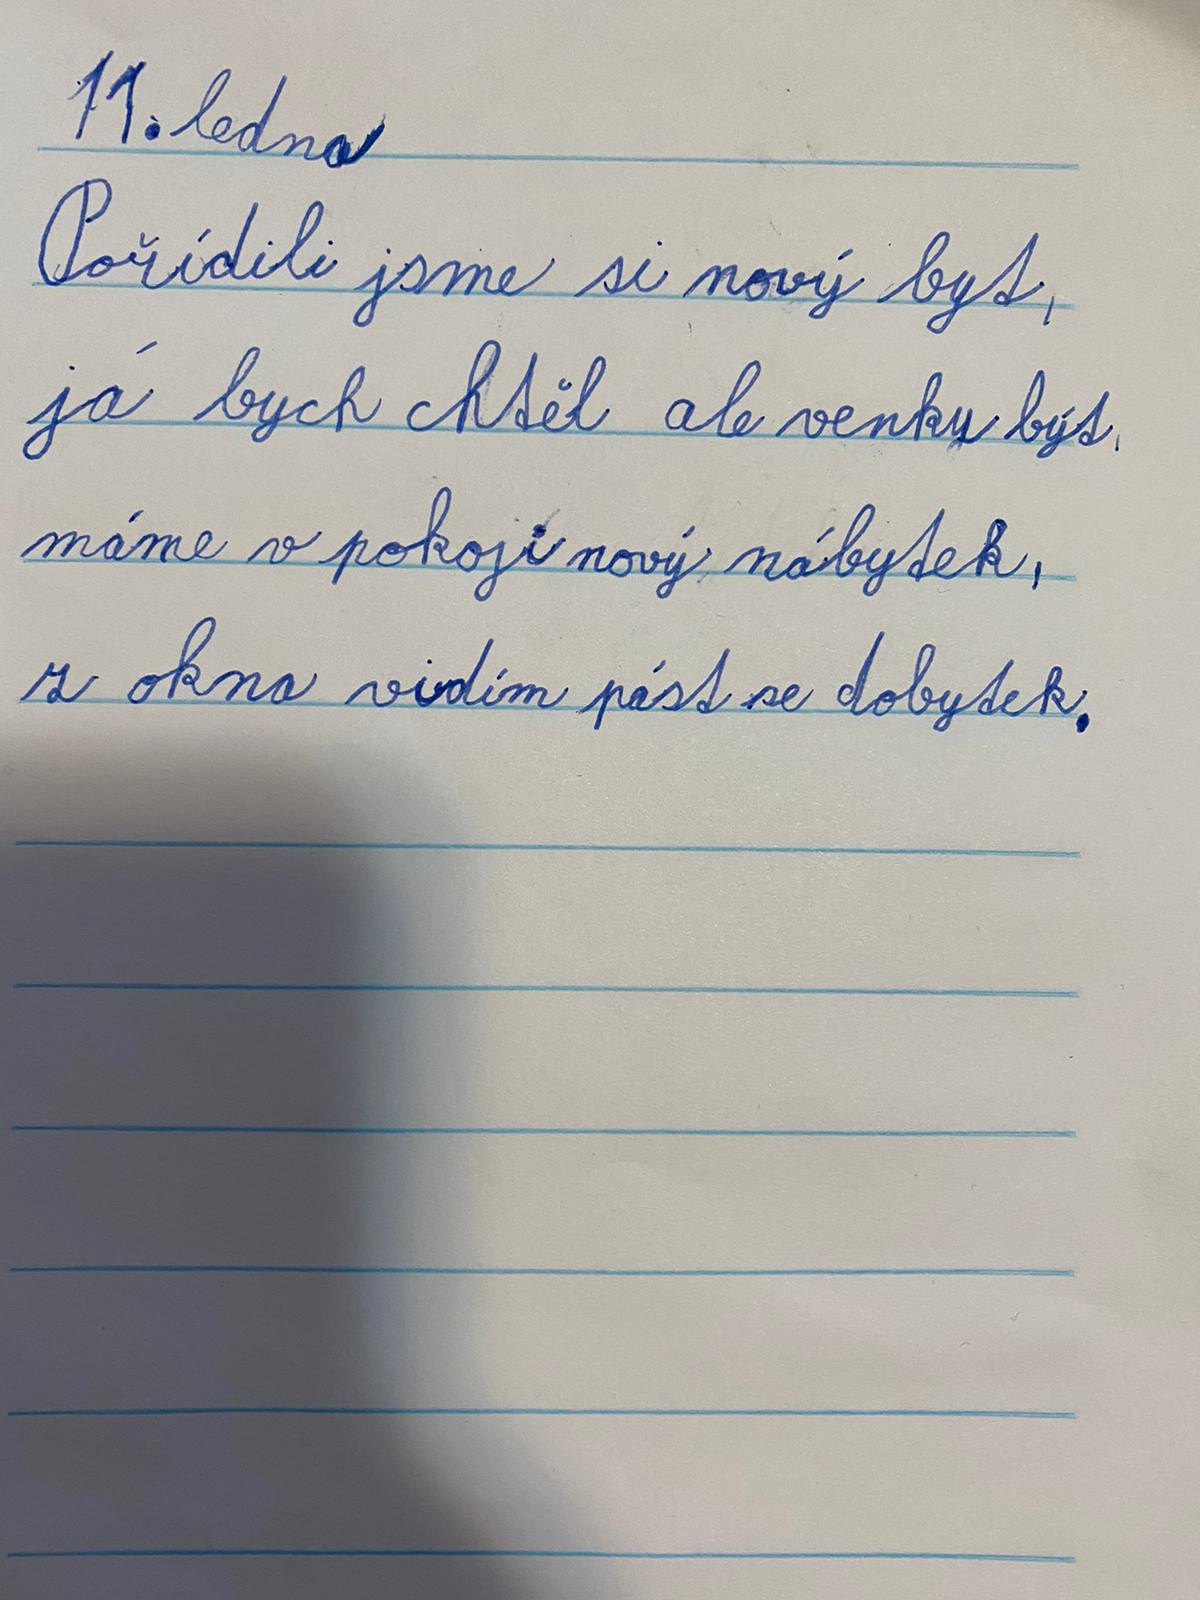 11. ledna
Pořídili jsme si nový byt,
já bych chtěl ale venku být,
máme v pokoji nový nábytek,
z okna vidím pást se dobytek.